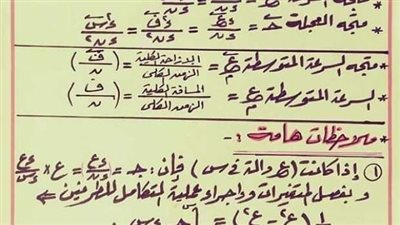 * متجه العجلة جـ = ءع/ءن = ء٢ف/ءن٢ = ء٢س/ءن٢
* متجه السرعة المتوسطة ع م = الإزاحة الكلية/الزمن الكلى = (ف/ن)
* السرعة المتوسطة ع م = المسافة الكلية/الزمن الكلى = (ف/ن)
* ملاحظات هامة :-
① إذا كانت (ع دالة فى س) فإن: جـ = ءع/ءن = ع × ءع/ءس
و بفصل المتغيرات و إجراء عملية التكامل للطرفين